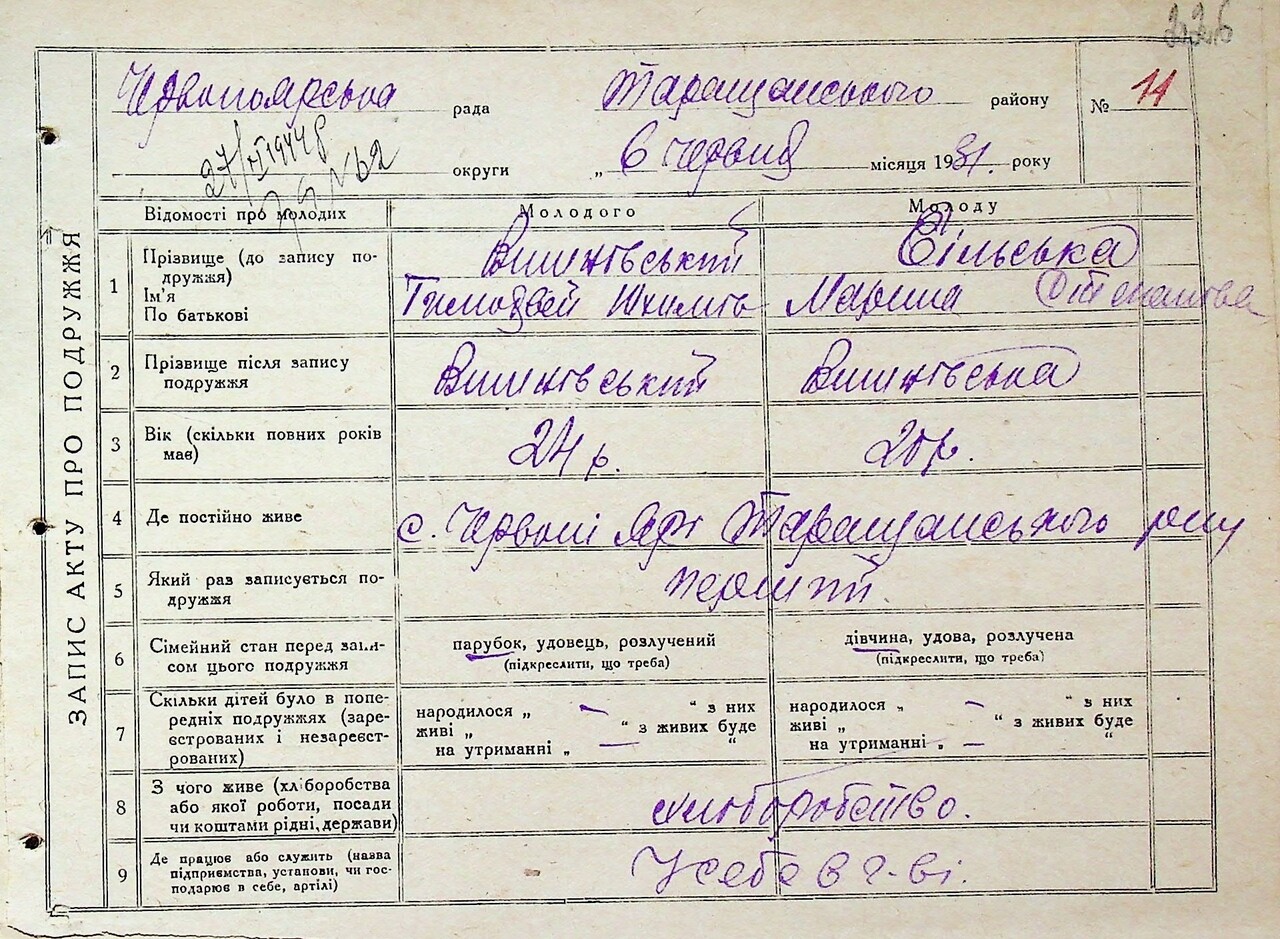 226
Червоноярська рада Таращанського району № 11
27/VI 1944 р
округи „ 6 Червня місяця 1931. року
№ 62
ЗАПИС АКТУ ПРО ПОДРУЖЖЯ
Відомості про молодих Молодого Молоду
1 Прізвище (до запису по-
дружжя)
Ім'я
По батькові
Вишнівський
Більська
Тимофвей
Марина Степанівва
2 Прізвище після запису
подружжя
Вишнівський Вишнівська
3 Вік (скільки повних років
має)
24 р. 20 р.
4 Де постійно живе с. Червоні Яри Таращанського р-ну
5 Який раз записується по-
дружжя
перший
6 Сімейний стан перед запи-
сом цього подружжя
парубок, удовець, розлучений дівчина, удова, розлучена
(підкреслити, що треба) (підкреслити, що треба)
7 Скільки дітей було в попе-
редніх подружжях (заре-
єстрованих і незареєст-
рованих)
народилося „ — “ з них народилося „ — “ з них
живі „ “ з живих буде живі „ “ з живих буде
на утриманні „ — “ на утриманні „ — “
8 З чого живе (хліборобства
або якої роботи, посади
чи коштами рідні, держави)
хліборобство.
9 Де працює або служить (назва
підприємства, установи, чи гос-
подарює в себе, артілі)
У себе в г-ві.